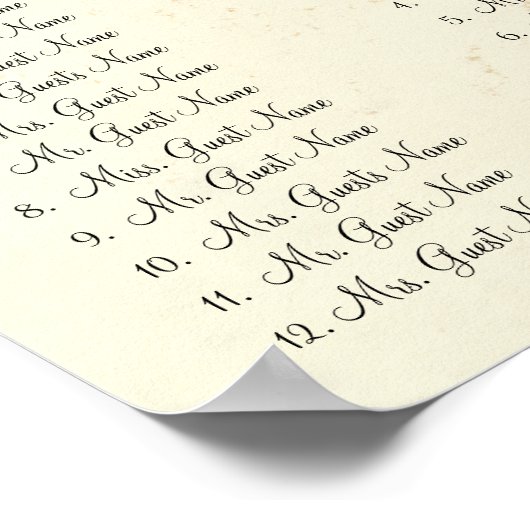 Name
Name
Guests Name
Mrs. Guest Name
Mr. Guest Name
8. Miss. Guest Name
9. Mr. Guest Name
10. Mrs. Guests Name
11. Mr. Guest Name
12. Mrs. Guest N
4.
5.
6.